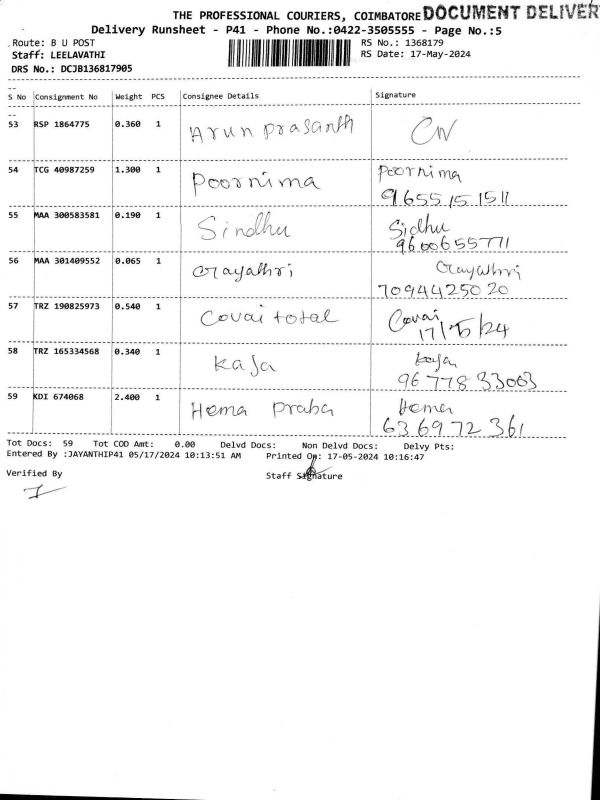 THE PROFESSIONAL COURIERS, COIMBATORE DOCUMENT DELIVER
Delivery Runsheet - P41 - Phone No.:0422-3505555 - Page No.:5
Route: B U POST RS No.: 1368179
Staff: LEELAVATHI RS Date: 17-May-2024
DRS No.: DCJB136817905
S No Consignment No Weight PCS Consignee Details Signature
53 RSP 1864775 0.360 1 Arun prasanth
54 TCG 40987259 1.300 1 Poornima Poornima
9655 15 1511
55 MAA 300583581 0.190 1 Sindhu Sidhu
9600655771
56 MAA 301409552 0.065 1 Gayathri Gayathri
7094425020
57 TRZ 190825973 0.540 1 Covai total Covai
17/5/24
58 TRZ 165334568 0.340 1 kaja kaja
96 778 33003
59 KDI 674068 2.400 1 Hema Praba Hema
636972 361
Tot Docs: 59 Tot COD Amt: 0.00 Delvd Docs: Non Delvd Docs: Delvy Pts:
Entered By :JAYANTHIP41 05/17/2024 10:13:51 AM Printed On: 17-05-2024 10:16:47
Verified By Staff Signature